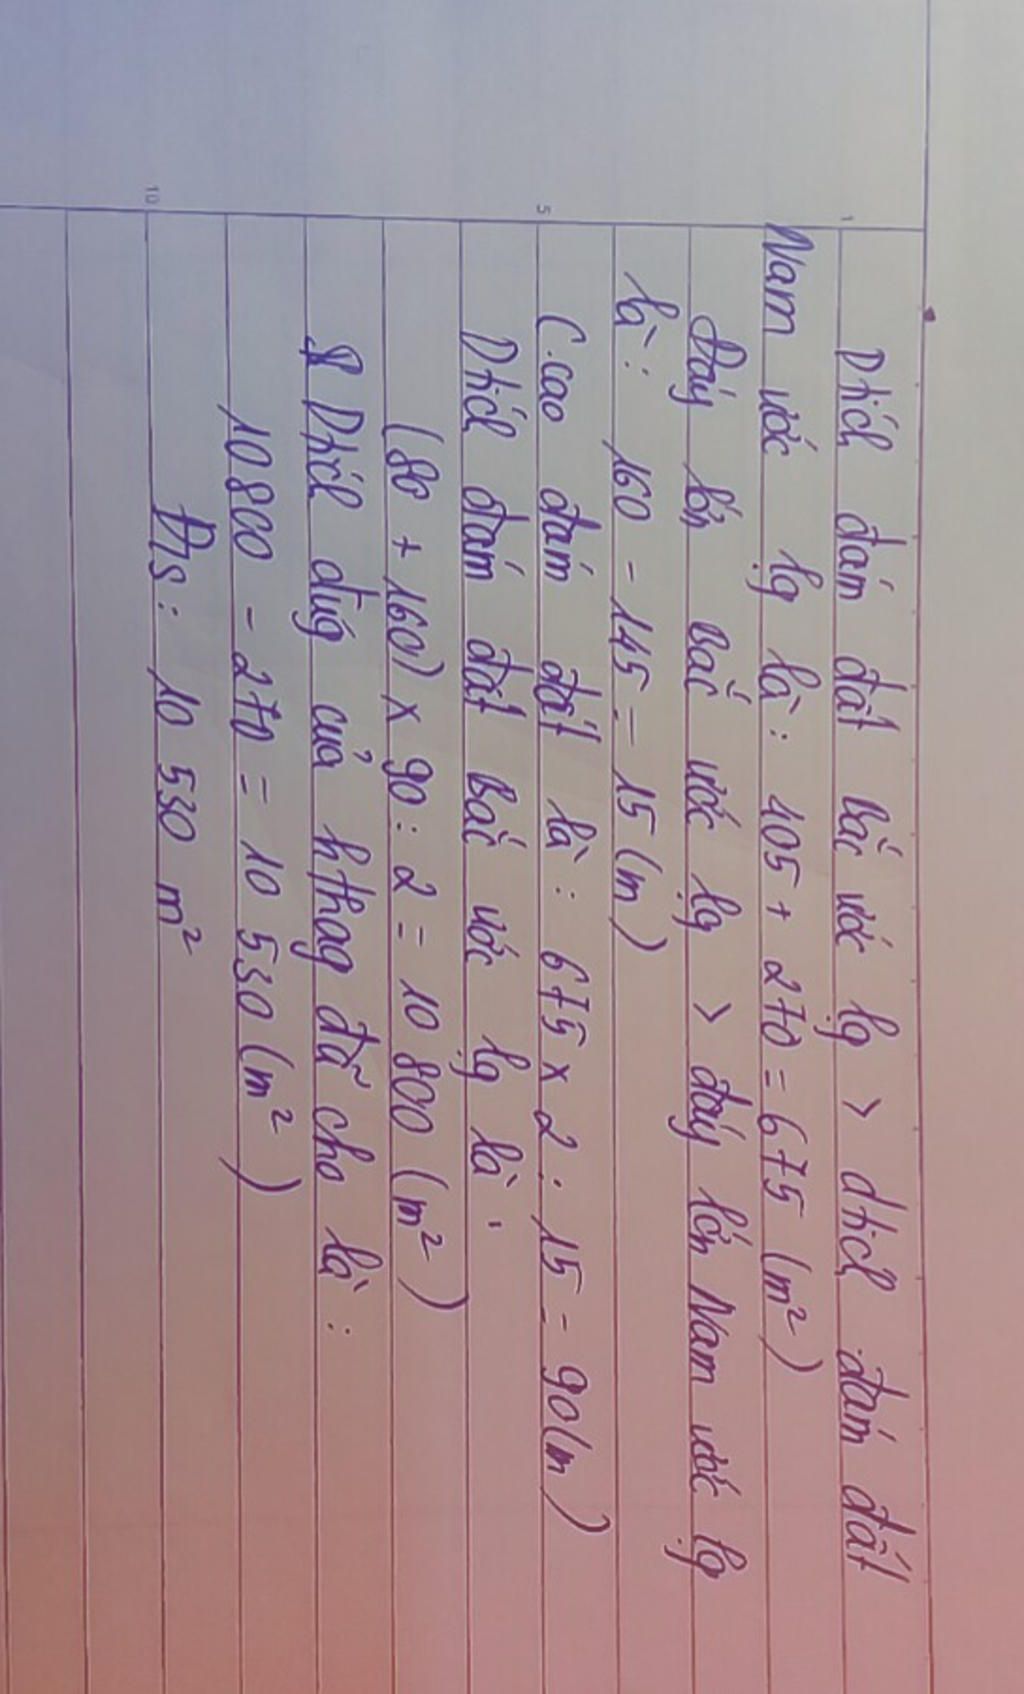 Dtích đám đất Bắc ước lg > dtích đám đất
Nam ước lg là: 405 + 270 = 675 (m²)
Đáy lớn Bắc ước lg > đáy lớn Nam ước lg
là: 160 - 145 = 15 (m)
C.cao đám đất là: 675 x 2 : 15 = 90 (m)
Dtích đám đất Bắc ước lg là:
(80 + 160) x 90 : 2 = 10 800 (m²)
Dtích đúg của hthag đã cho là:
10 800 - 270 = 10 530 (m²)
Đ/s: 10 530 m²
1
5
10